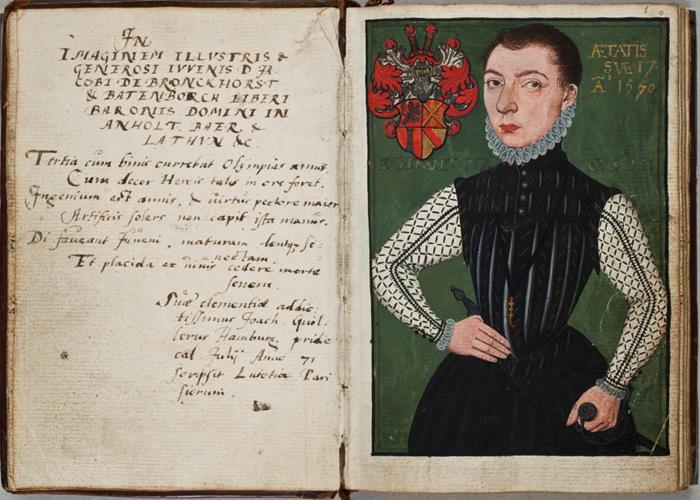 IN
IMAGINEM ILLVSTRIS &
GENEROSI IVVENIS D JA
COBI DE BRONCKHORST
& BATENBORCH LIBERI
BARONIS DOMINI IN
ANHOLT BAER &
LATHVN &c.
Tertia cum binis currebat Olympias annis,
Cum decor Herois talis in ore foret.
Ingenium est annis, & uirtus pectore maior
Artificis solers non capit ista manus.
Di faueant Juueni, maturam
Et placida ex uiuis cedere morte
senem.
Suæ clementiæ addic-
tissimus Joach.
Hamburg. pridie
cal. Julij Anno 71
scripsit Lutetiæ Pari
siorum.
ÆTATIS
SVÆ 17
Aº 1570